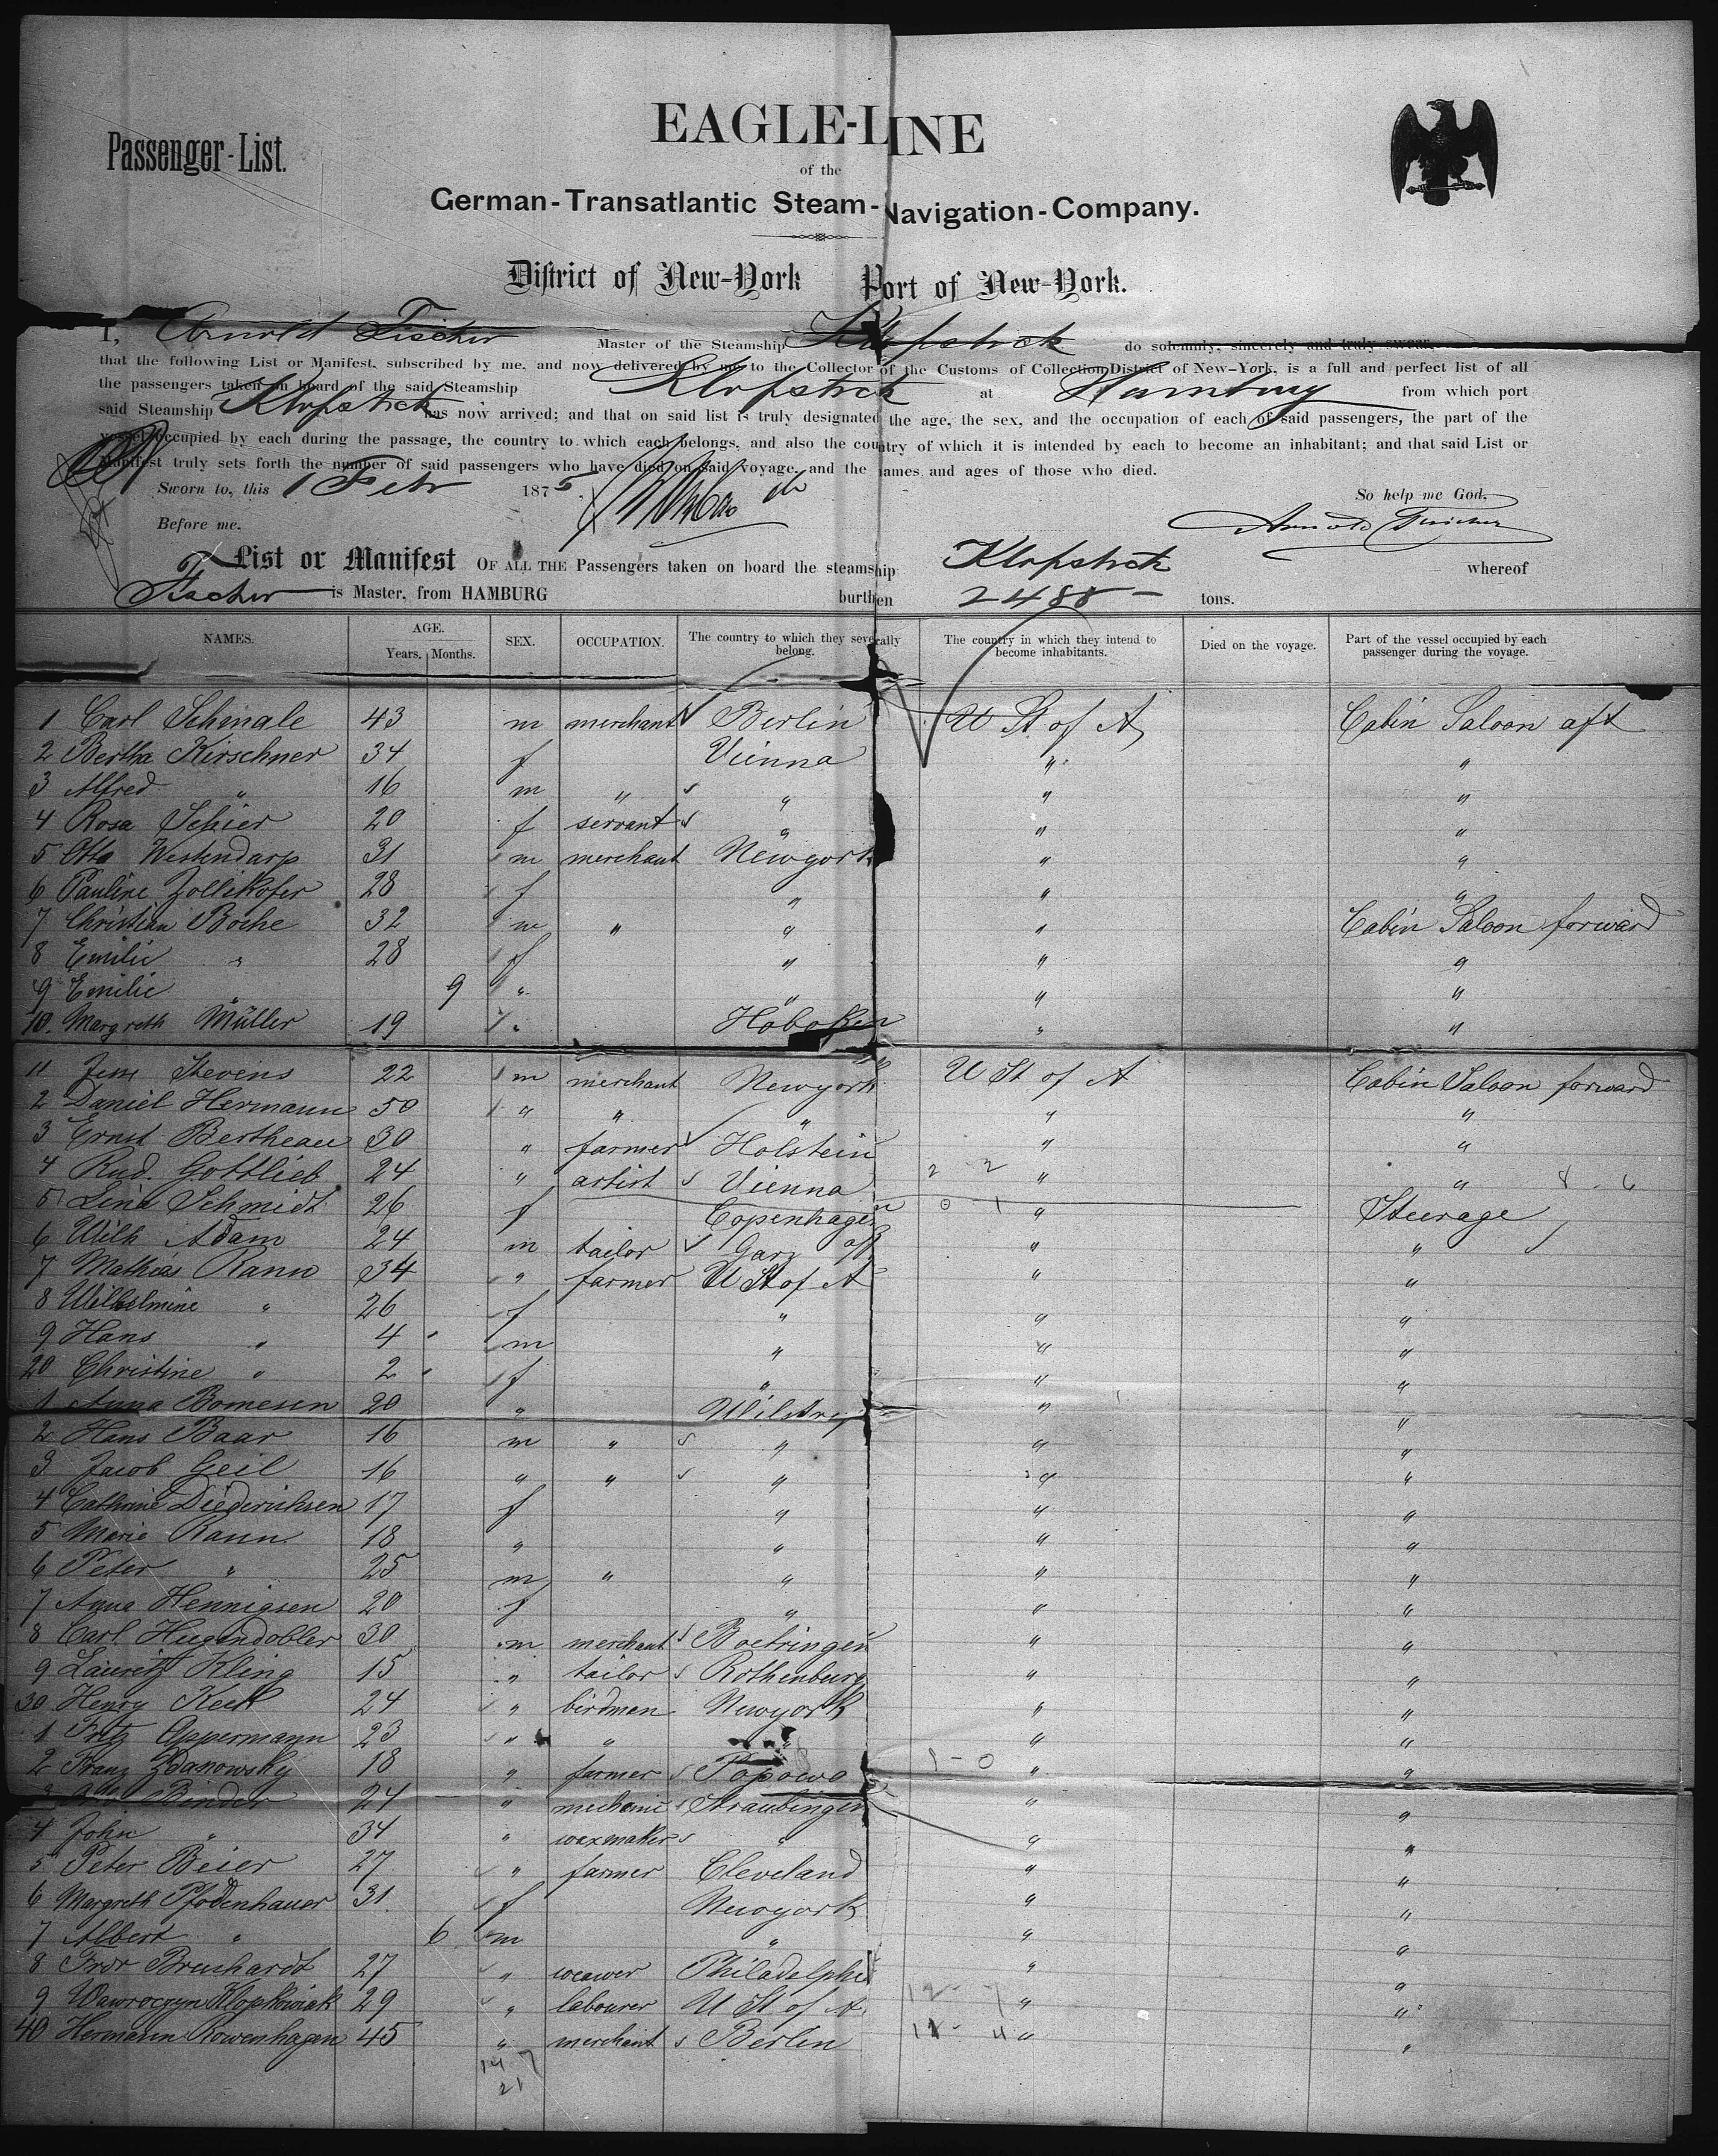 Passenger-List.
EAGLE-LINE
of the
German-Transatlantic Steam-Navigation-Company.
District of New-York Port of New-York.
I, Arnold Fischer Master of the Steamship Klopstock do solemnly, sincerely and truly swear,
that the following List or Manifest, subscribed by me, and now delivered by me to the Collector of the Customs of Collection District of New-York, is a full and perfect list of all
the passengers taken on board of the said Steamship Klopstock at Hamburg from which port
said Steamship Klopstock has now arrived; and that on said list is truly designated the age, the sex, and the occupation of each of said passengers, the part of the
vessel occupied by each during the passage, the country to which each belongs, and also the country of which it is intended by each to become an inhabitant; and that said List or
Manifest truly sets forth the number of said passengers who have died on said voyage, and the names and ages of those who died.
Sworn to, this 1 Febr 1875.
So help me God.
Before me.
Arnold Fischer
List or Manifest OF ALL THE Passengers taken on board the steamship Klopstock whereof
Fischer is Master, from HAMBURG burthen 2488 - tons.
NAMES. AGE. Years. Months. SEX. OCCUPATION. The country to which they severally belong. The country in which they intend to become inhabitants. Died on the voyage. Part of the vessel occupied by each passenger during the voyage.
1 Carl Schmale 43 m merchant Berlin U St of A Cabin Saloon aft
2 Bertha Kirschner 34 f Vienna " "
3 Alfred " 16 m " " " "
4 Rosa Schier 20 f servant " " "
5 Otto Westendarp 31 m merchant Newyork " "
6 Pauline Zollikofer 28 f " " "
7 Christian Boche 32 m " " " Cabin Saloon forward
8 Emilie " 28 f " " "
9 Emilie " 9 " " " "
10. Margreth Müller 19 " Hoboken " "
11 Jens Stevens 22 m merchant Newyork U St of A Cabin Saloon forward
2 Daniel Hermann 50 " " " " "
3 Ernst Bertheau 30 " farmer Holstein " "
4 Rud. Gottlieb 24 " artist Vienna 2 2 " " 8 - 6
5 Lina Schmidt 26 f Copenhagen 0 - 1 " Steerage
6 Wilh Adam 24 m tailor Garz " "
7 Mathias Rann 34 " farmer U St of A " "
8 Wilhelmine " 26 f " " "
9 Hans " 4 m " " "
20 Christine " 2 f " " "
1 Anna Bomesen 20 " " "
2 Hans Baar 16 m " " " "
3 Jacob Geil 16 " " " " "
4 Cathrine Diederichsen 17 f " " "
5 Marie Rann 18 " " " "
6 Peter " 25 m " " " "
7 Anna Hennigsen 20 f " " "
8 Carl Hugendobler 30 m merchant Boetringen " "
9 Lauritz Kling 15 " tailor Rothenburg " "
30 Henry Keck 24 " birdman Newyork " "
1 Fritz Oppermann 23 " " " " "
2 Franz Zdanowsky 18 " farmer Popowo 1 - 0 " "
3 Binder 24 " mechanic Straubingen " "
4 John " 34 " waxmaker " " "
5 Peter Beier 27 " farmer Cleveland " "
6 Margreth Pfodenhauer 31 f Newyork " "
7 Albert " 6 m " " "
8 Fror Brushardt 27 " weawer Philadelphi " "
9 Wawroczyn Klopkowiak 29 " labourer U St of A. 12 - 7 " "
40 Hermann Rowenhagen 45 " merchant Berlin 11 - 4 " "
14 7
21